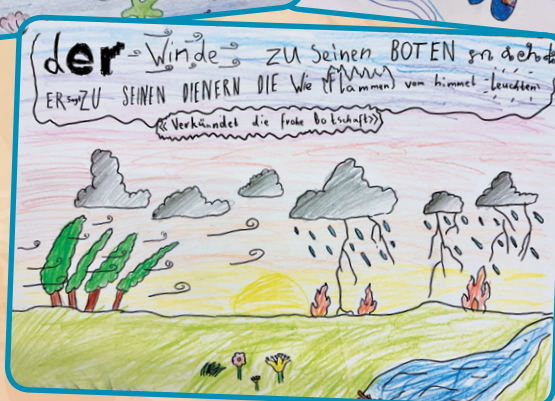 der Winde zu seinen BOTEN
ER sagt ZU SEINEN DIENERN DIE Wie Flammen vom himmel leuchten
«Verkündet die frohe Botschaft»